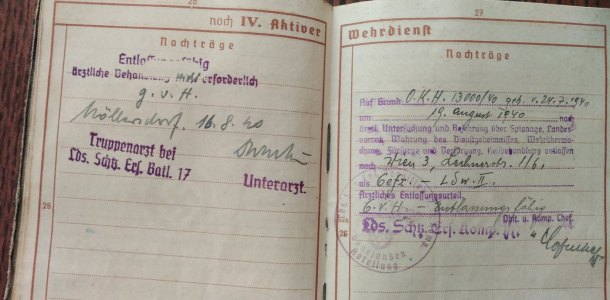 26
noch IV. Aktiver
Nachträge
Entlassungsfähig
ärztliche Behandlung nicht erforderlich
g. v. H.
Möllersdorf. 16.8.40
Truppenarzt bei
Lds. Schtz. Ers. Batl. 17
Unterarzt.
25
27
Wehrdienst
Nachträge
Auf Grund O.K.H. 13000/40 geh. v. 24.7.1940
am 19. August 1940 nach
ärztl. Untersuchung und Belehrung über Spionage, Landes-
verrat, Wahrung des Dienstgeheimnisses, Wehrüberwa-
chung, Fürsorge und Versorgung, entlassen
nach Wien 3,
als Gefr. - Ldw. II.
Ärztliches Entlassungsurteil:
G.v.H. - Entlassungsfähig
Hptl. u. Komp. Chef.
Lds. Schtz. Ers. Komp.
26
Abteilung